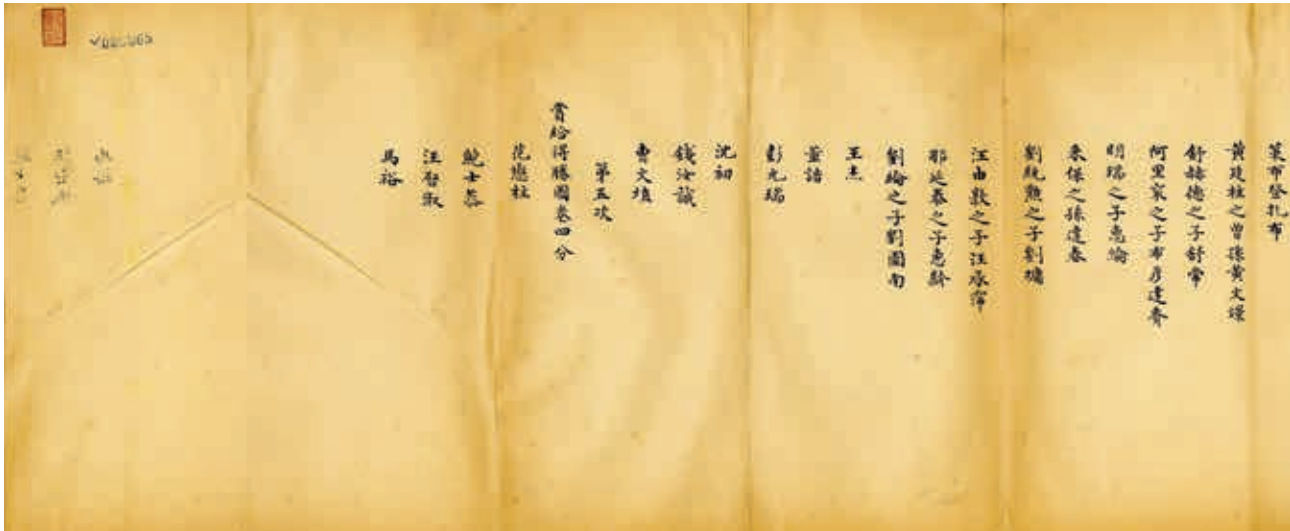 策布登扎布
黃廷桂之曾孫黃文煜
舒赫德之子舒常
阿里袞之子布彥達賚
明瑞之子惠倫
來保之孫遑泰
劉統勲之子劉墉
汪由敦之子汪承霈
鄂延泰之子惠齡
劉綸之子劉圖南
王杰
董誥
彭元瑞
沈初
錢汝誠
曹文埴
第五次
賞給得勝圖卷四分
范懋柱
鮑士恭
汪啓淑
馬裕